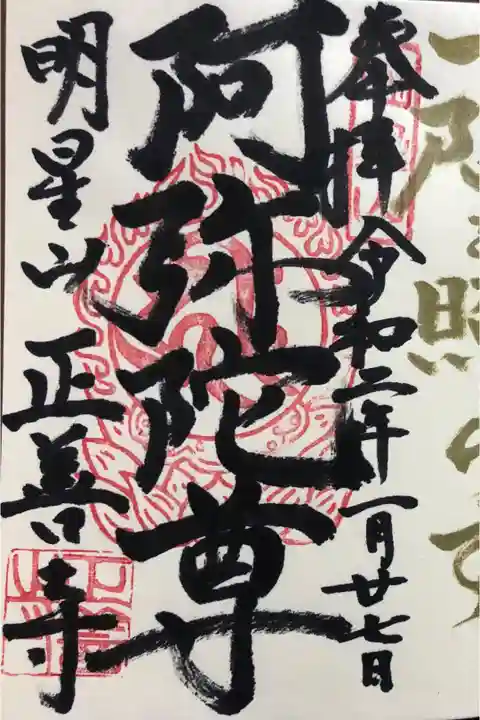 一隅を照らす
奉拝 令和二年 一月廿七日
阿弥陀尊
明星山 正善寺